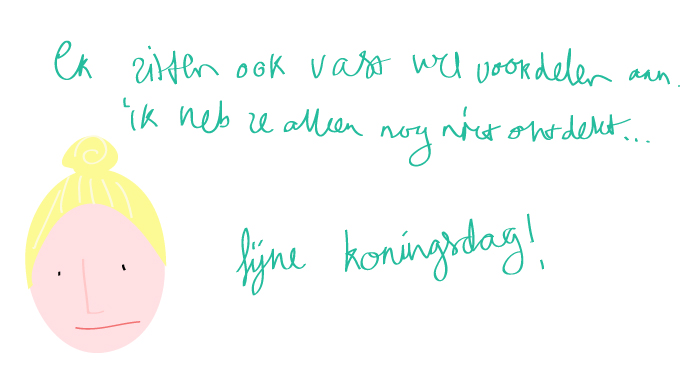 Er zitten ook vast wel voordelen aan.
ik heb ze alleen nog niet ontdekt...
fijne koningsdag!